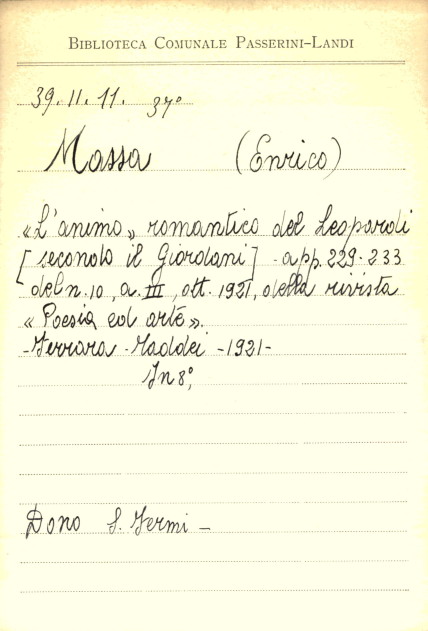 BIBLIOTECA COMUNALE PASSERINI-LANDI
39.II.11. 37°
Massa (Enrico)
«L'animo» romantico del Leopardi
[secondo il Giordani] - app. 229-233
del n. 10, a. III, ott. 1921, della rivista
«Poesia ed arte».
- Ferrara - Taddei - 1921 -
In 8°,
Dono S. Fermi -